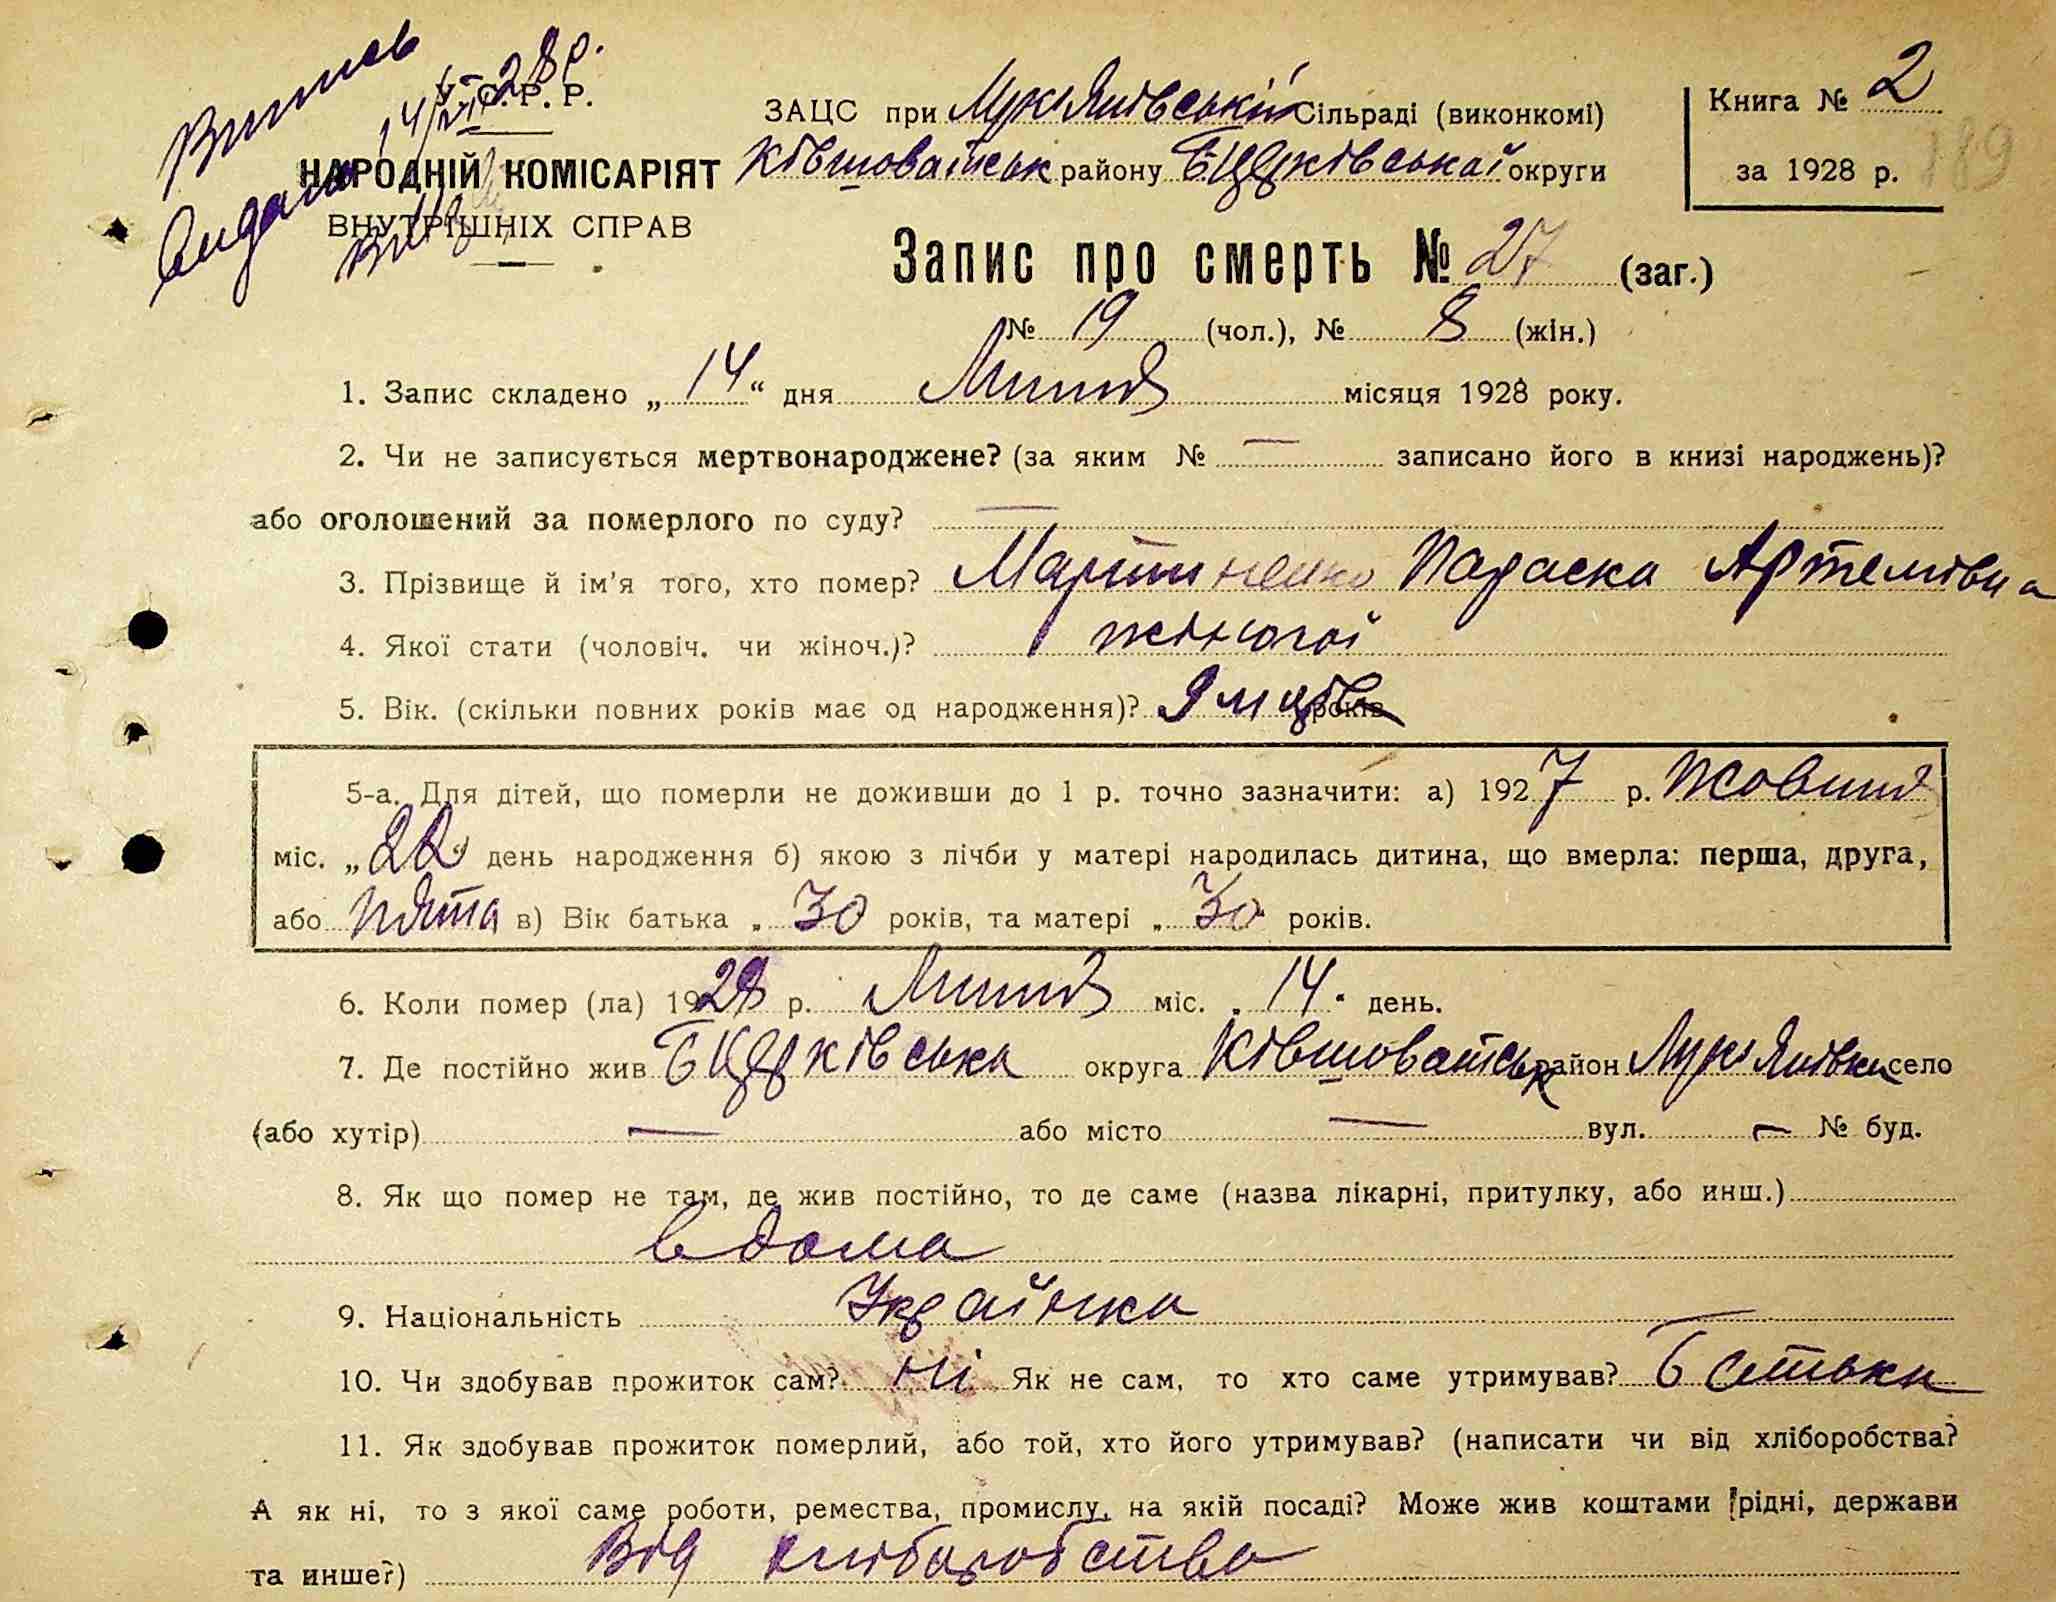 Витяг
видано 14/VII 28 р.
У. С. Р. Р.
НАРОДНІЙ КОМІСАРІЯТ
ВНУТРІШНІХ СПРАВ
ЗАЦС при Лукʼянівській Сільраді (виконкомі)
Ківшоватськ району БЦерківської округи
Книга № 2
за 1928 р.
189
Запис про смерть № 27 (заг.)
№ 19 (чол.), № 8 (жін.)
1. Запис складено „14“ дня Липня місяця 1928 року.
2. Чи не записується мертвонароджене? (за яким № — записано його в книзі народжень)?
або оголошений за померлого по суду? —
3. Прізвище й ім'я того, хто помер? Мартиненко Параска Артемівна
4. Якої стати (чоловіч. чи жіноч.)? жіночої
5. Вік. (скільки повних років має од народження)? 9 міців років
5-а. Для дітей, що померли не доживши до 1 р. точно зазначити: а) 1927 р. Жовтня
міс. „22“ день народження б) якою з лічби у матері народилась дитина, що вмерла: перша, друга,
або пята в) Вік батька „ 30 років, та матері „ 30 років.
6. Коли помер (ла) 1928 р. Липня міс. „ 14 “ день.
7. Де постійно жив БЦерківська округа Ківшоватськ район Лукʼянівка село
(або хутір) — або місто — вул. — № буд.
8. Як що помер не там, де жив постійно, то де саме (назва лікарні, притулку, або инш.)
в дома
9. Національність Українка
10. Чи здобував прожиток сам? ні Як не сам, то хто саме утримував? Батьки
11. Як здобував прожиток померлий, або той, хто його утримував? (написати чи від хліборобства?
А як ні, то з якої саме роботи, ремества, промислу, на якій посаді? Може жив коштами рідні, держави
та инше?) Від хліборобства